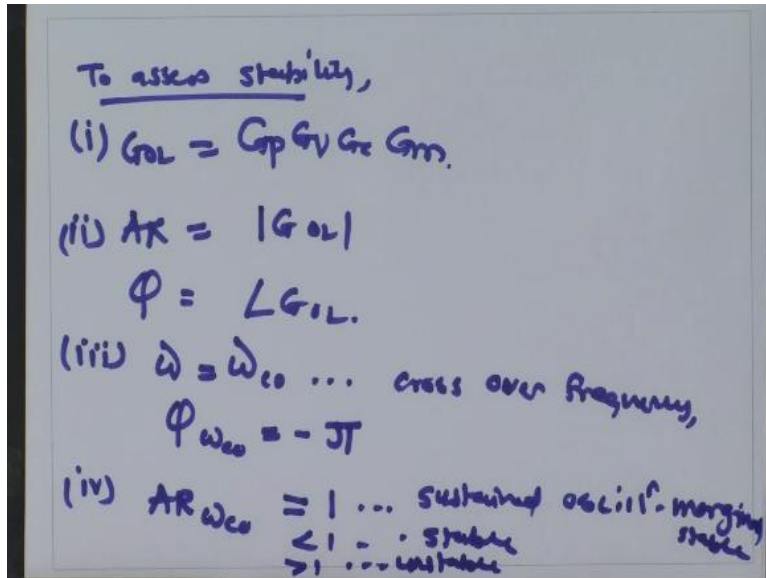 To assess stability,
(i) GOL = Gp Gv Gc Gm.
(ii) AR = |GOL|
φ = ∠GOL.
(iii) ω = ωco ... cross over frequency,
φωco = - π
(iv) ARωco = 1 ... sustained oscillⁿ. marginally stable
< 1 - . stable
> 1 ... unstable